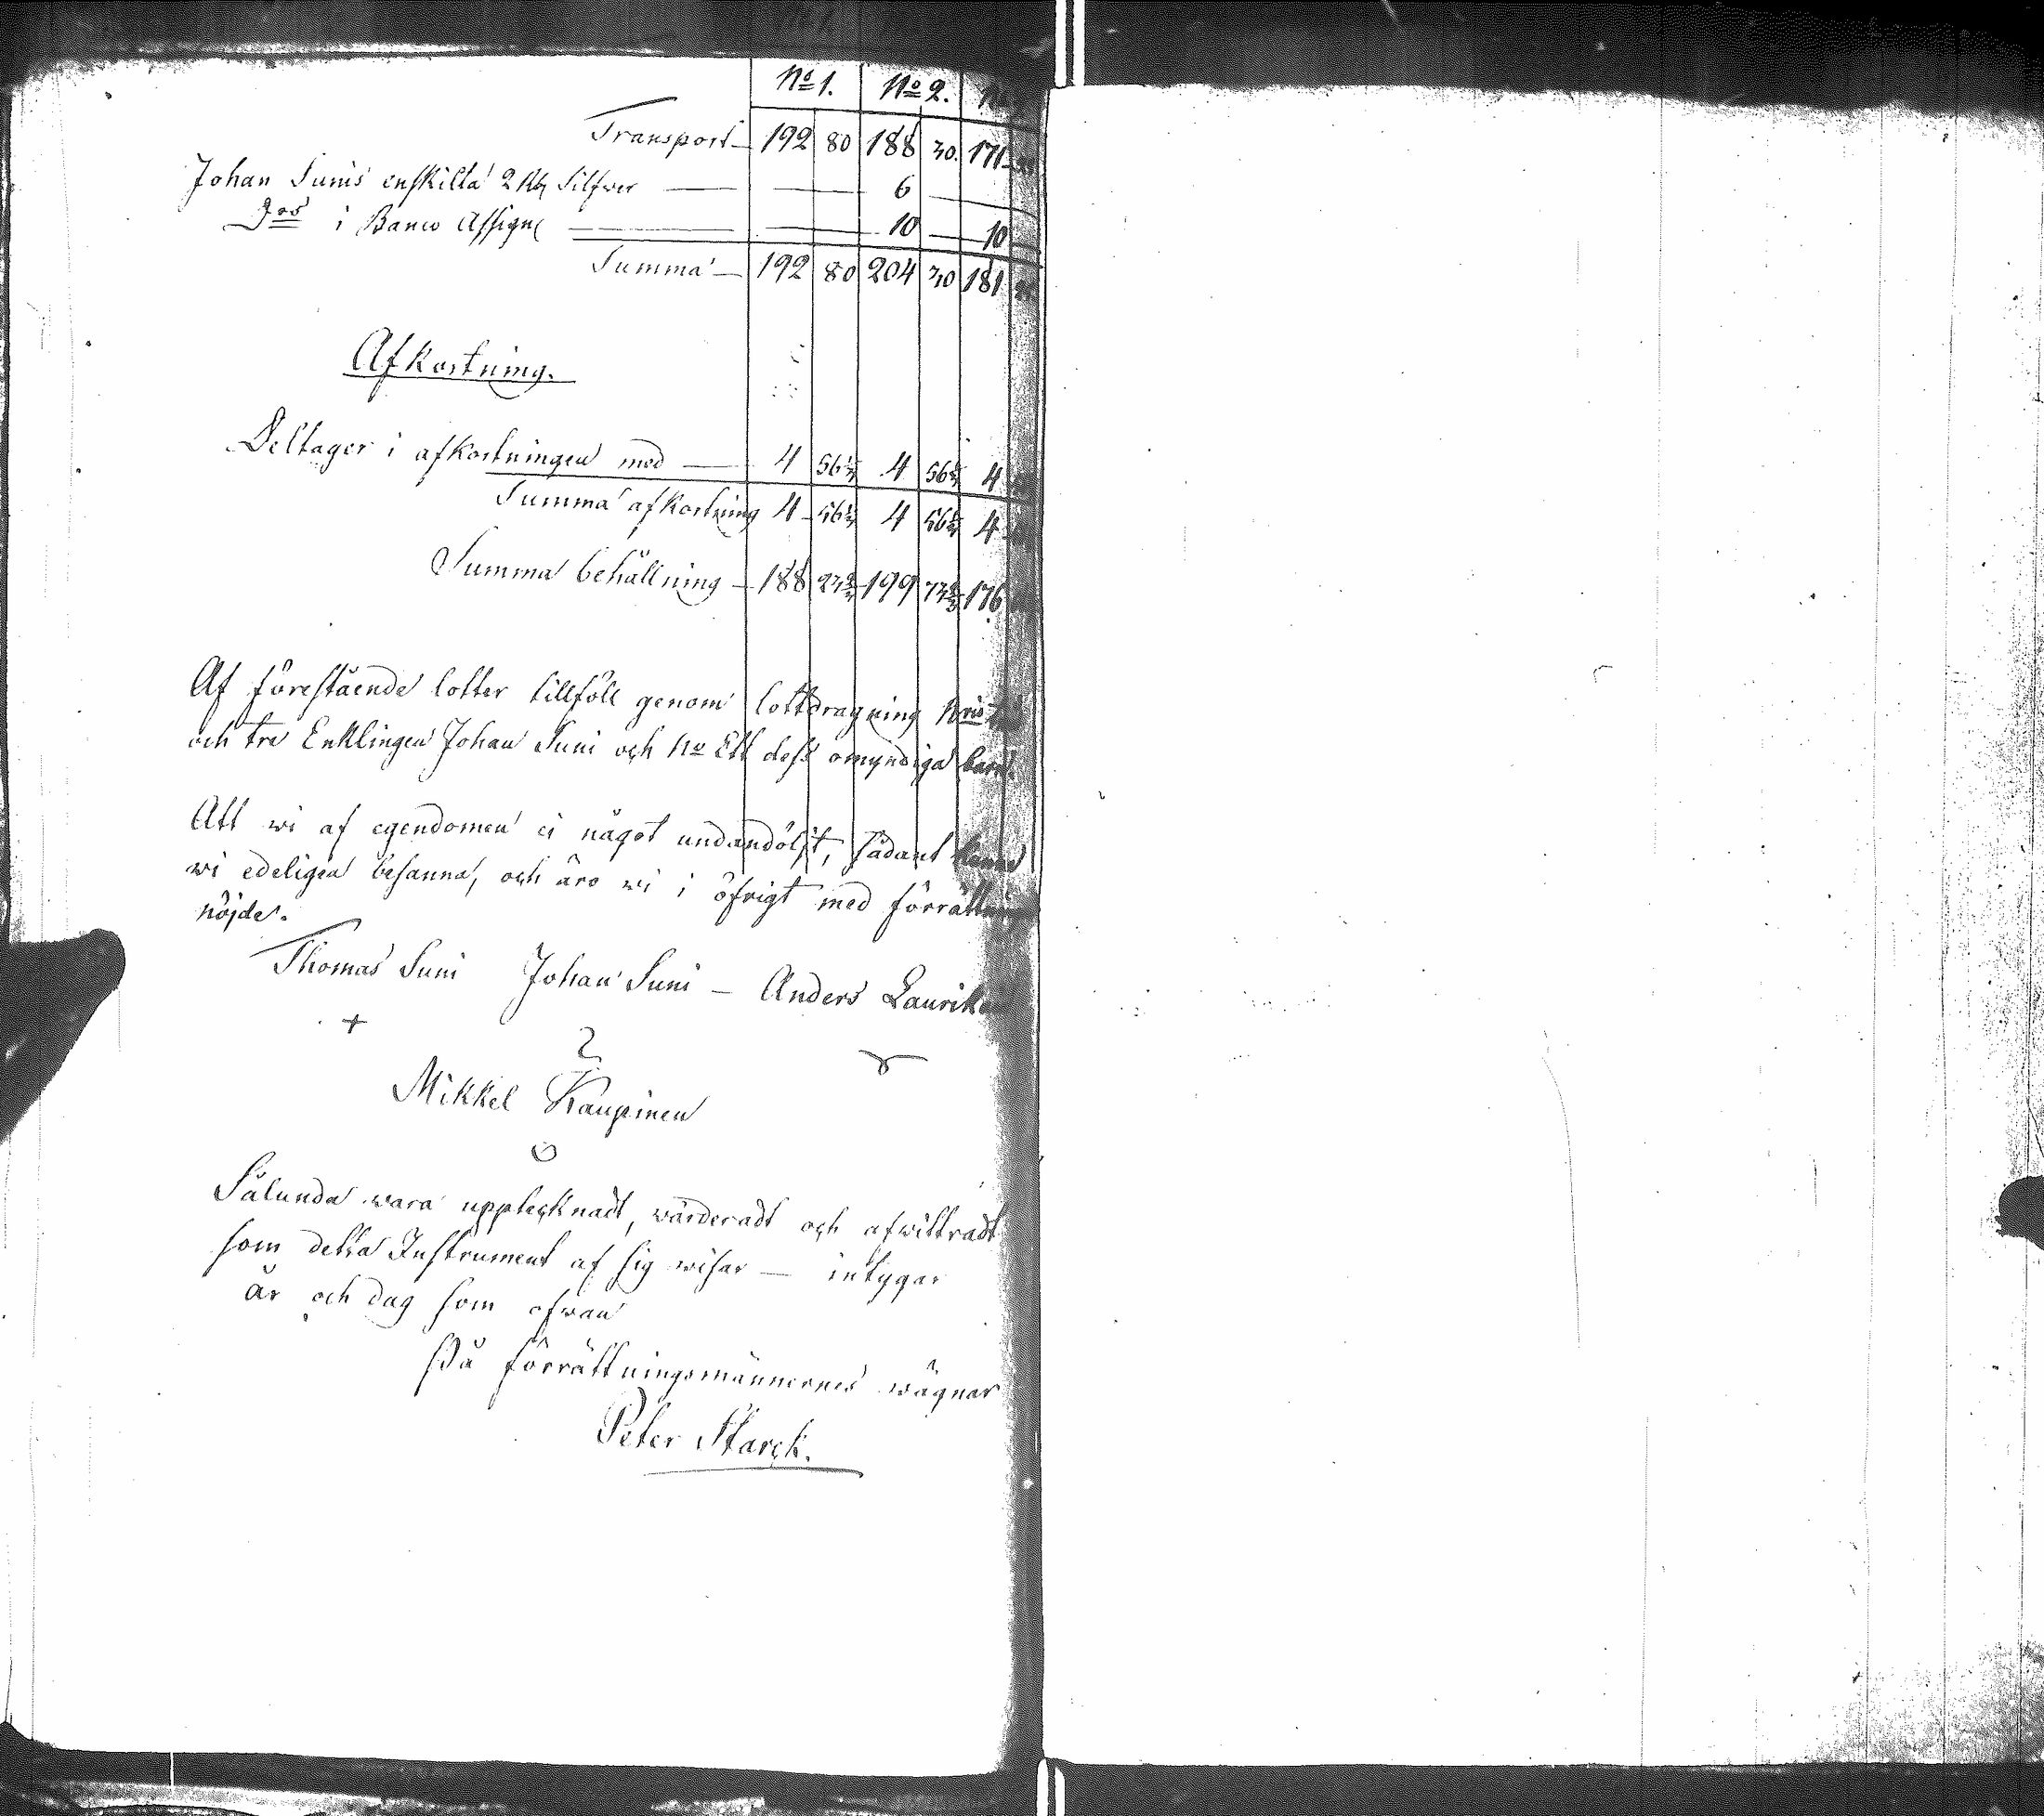 No 1. No 2.
Transport — 192 80 188 30. 171
Johan Sunis enskilta 2 Rb Silfver — — 6 —
Dos i Banco Assign — — 10 — 10
Summa — 192 80 204 30 181
Afkortning.
Deltager i afkortningen med — 4 56⅓ 4 56⅓ 4
Summa afkortning 4 56⅓ 4 56⅓ 4
Summa behållning — 188 23⅔ 199 73⅔ 176
Af förestående lotter tillföll genom lottdragning
och tre Enklingen Johan Suni och No Ett dess omyndiga barn.
Att wi af egendomen ei något undandölgt, sådant kunna
wi edeligen besanna, och äro wi i öfrigt med förrättningen
nöjde.
Thomas Suni Johan Suni — Anders
Mikkel Kaupinen
Sålunda wara upptecknadt, värderadt och afwittradt
som detta Instrument af sig wisar — intygar
År och dag som ofwan
På förrättningsmännernes wägnar
Peter Starck.